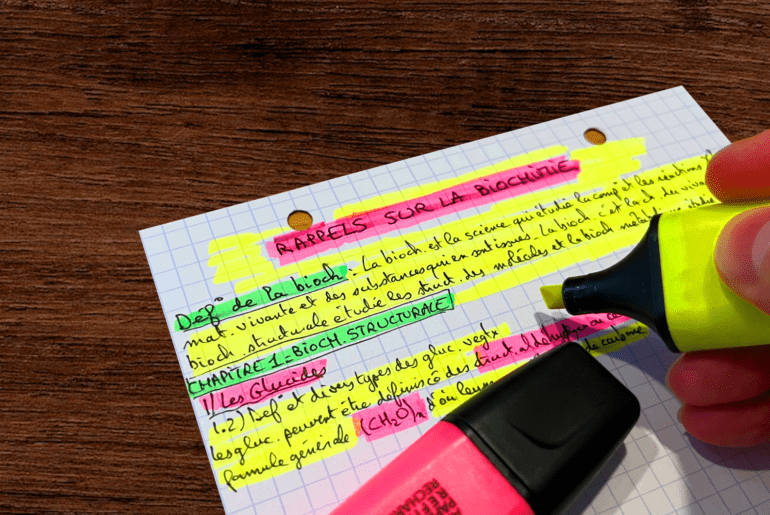 RAPPELS SUR LA BIOCHIMIE
Def° de la bioch : La bioch. et la science qui étudie la comp° et les réactions
mat. vivante et des substances qui en sont issues. La bioch c'est la ch. du vivant
bioch structurale étudie les struct. des molécules et la bioch métabo étudie
CHAPITRE 1 = BIOCH. STRUCTURALE
1) Les Glucides
1.2) Def° et divers types des gluc. vegtx
les gluc. peuvent être définis cô des struct. aldehydiques
formule générale (CH2O)n d'où leurs de carbone
PA
REFI
RECHAR